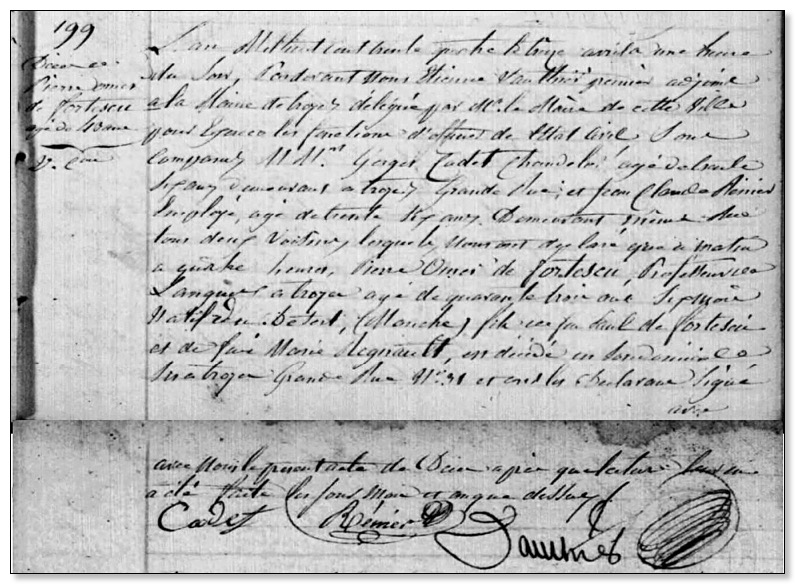 199
Décès de
Pierre Omer
de fortescu
agé de 43 ans
L'an Mil huit cent trente quatre le treize avril a une heure
du Soir, Pardevant Nous Etienne Vauthier premier adjoint
a la Mairie de troyes délégué par Mr. le Maire de cette Ville
pour Exercer les fonctions d'officier de l'Etat Civil Sont
Comparus MM. Georges Cadet Chandelier agé de trente
six ans demeurant a troyes Grande Rue, et Jean Claude Rénier
Employé, agé de trente six ans Demeurant même Rue
tous deux Voisins, lesquels Nous ont déclaré que ce matin
a quatre heures, Pierre Omer de fortescu Professeur de
Langues a troyes agé de quarante trois ans Six mois
Natif de Desert, (Manche) fils de feu Paul de fortescu
et de feue Marie Regnault, est décédé en Son domicile
Sis a troyes Grande Rue No. 31 et ont les Déclarans Signé
avec
avec Nous le present acte de Décès après que lecture leur en
a été faite les jour, mois et an que dessus
Cadet Rénier Vauthier